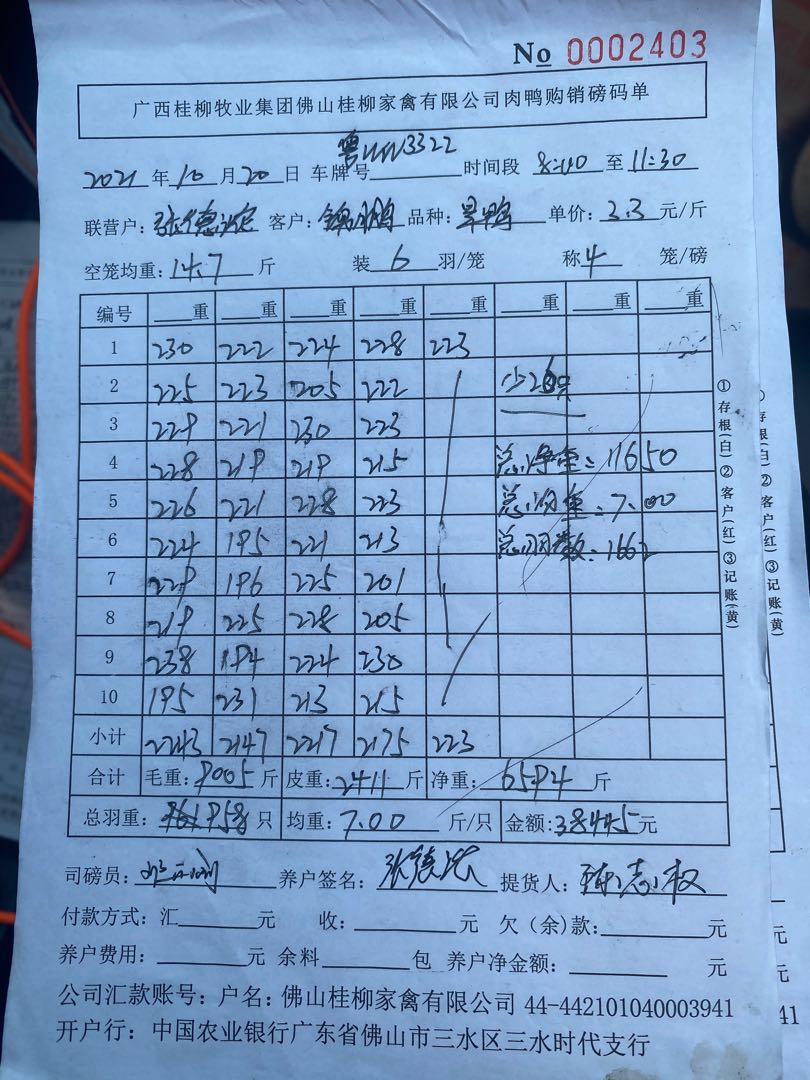 No 0002403
广西桂柳牧业集团佛山桂柳家禽有限公司肉鸭购销磅码单
2021年10月20日 车牌号 3322 时间段 8:40 至 11:30
联营户: 张德 客户: 鹏 品种: 鸭 单价: 元/斤
空笼均重: 14.7 斤 装 6 羽/笼 称 4 笼/磅
编号 重 重 重 重 重 重 重 重
1 230 222 224 228 223
2 225 223 205 222 少2只
3 229 221 230 223
4 228 219 219 215 总净重: 11650
5 226 221 228 223 总均重: 7.00
6 224 195 221 213 总羽数: 1662
7 229 196 225 201
8 219 225 228 205
9 238 194 224 230
10 195 231 213 215
小计 2243 2147 2217 2175 223
合计 毛重: 9005 斤 皮重: 2411 斤 净重: 6594 斤
总羽重: 958 只 均重: 7.00 斤/只 金额: 38445 元
司磅员: 养户签名: 张德 提货人: 志权
付款方式: 汇 元 收: 元 欠(余)款: 元
养户费用: 元 余料 包 养户净金额: 元
公司汇款账号: 户名: 佛山桂柳家禽有限公司 44-442101040003941
开户行: 中国农业银行广东省佛山市三水区三水时代支行
①存根(白)②客户(红)③记账(黄)
存根(白)②客户(红)③记账(黄)
41